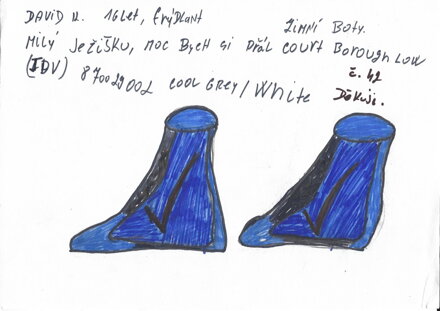 DAVID H. 16 let, frýdlant
ZIMNÍ BOTY.
Milý Ježíšku, moc bych si přál court Borough Low
(IDV) 870029002 COOL GREY/White č. 42
Děkuji.